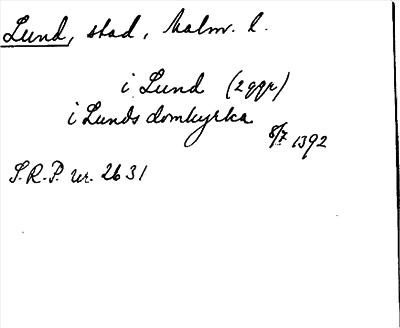 Lund, stad, Malm. l.
i Lund (2 ggr)
i Lunds domkyrka
8/7 1392
S.R.P. nr. 2631